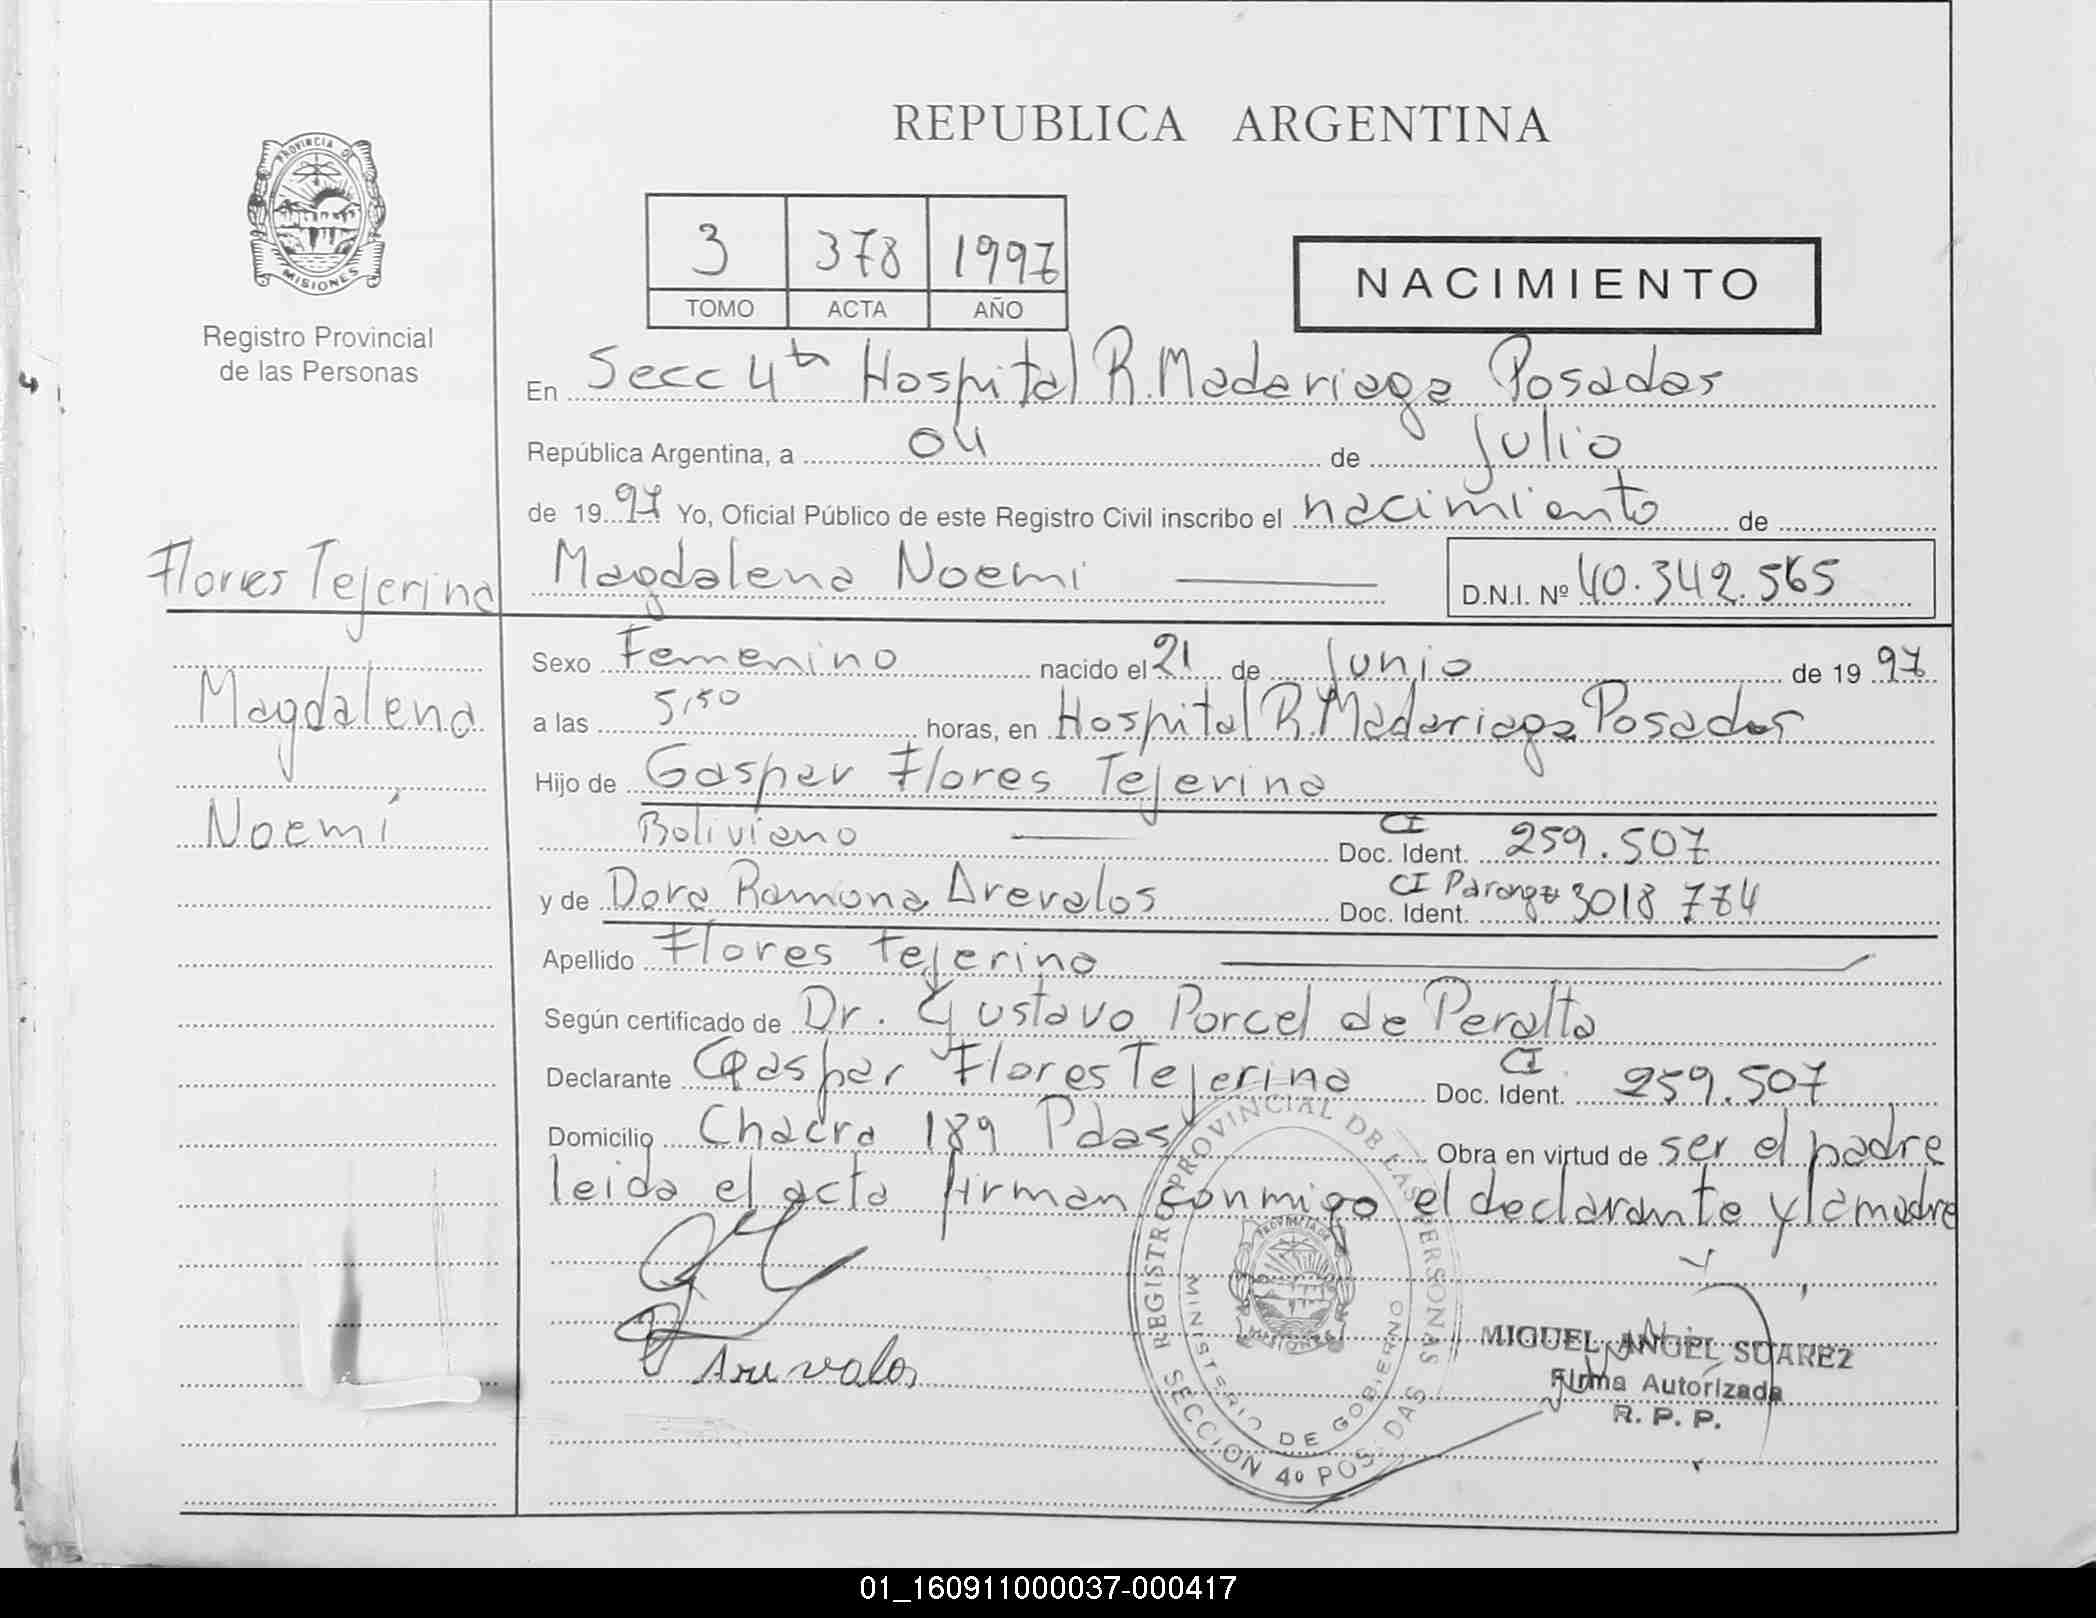 REPUBLICA ARGENTINA
PROVINCIA D
MISIONES
Registro Provincial
de las Personas
3 378 1997
TOMO ACTA AÑO
NACIMIENTO
4
En Secc 4ta Hospital R. Madariaga Posadas
República Argentina, a 04 de Julio
de 1997 Yo, Oficial Público de este Registro Civil inscribo el nacimiento de
Flores Tejerina
Magdalena Noemi
D.N.I. Nº 40.342.565
Magdalena
Noemí
Sexo Femenino nacido el 21 de Junio de 1997
a las 5,50 horas, en Hospital R. Madariaga Posadas
Hijo de Gaspar Flores Tejerina
Boliviano Doc. Ident. CI 259.507
y de Dora Ramona Arevalos Doc. Ident. CI 3018 774
Apellido Flores Tejerina
Según certificado de Dr. Gustavo Porcel de Peralta
Declarante Gaspar Flores Tejerina Doc. Ident. CI 259.507
Domicilio Chacra 189 Pdas Obra en virtud de ser el padre
leida el acta firman conmigo el declarante y la madre
REGISTRO PROVINCIAL DE LAS PERSONAS
MINISTERIO DE GOBIERNO
SECCION 4º POSADAS
PROVINCIA DE
MISIONES
MIGUEL ANGEL SUAREZ
Firma Autorizada
R. P. P.
01_160911000037-000417